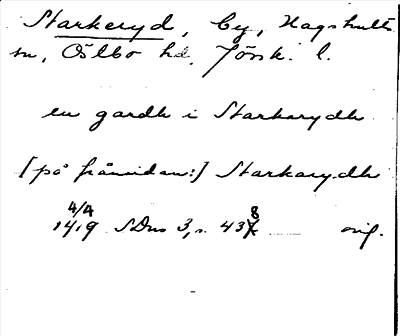 Starkeryd, by, Hagshults
sn, Östbo hd, Jönk. l.
en gardh i Starkarydh
[på frånsidan:] Starkarydh
4/4
1419 SDns 3, s. 438 orig.